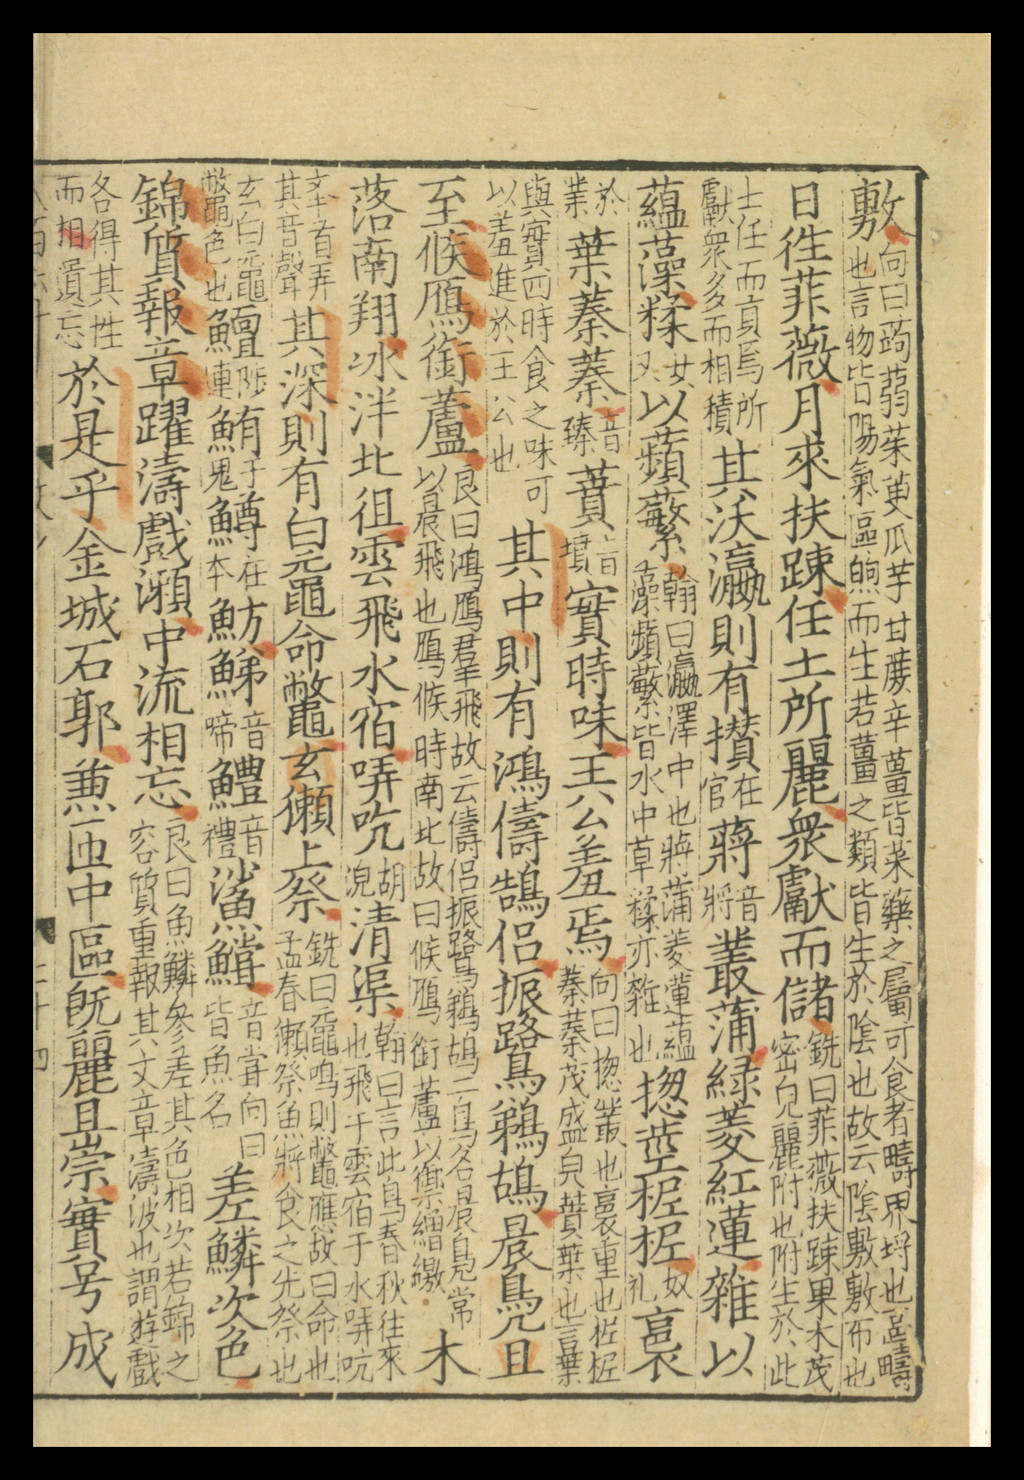 敷向曰蒟蒻茱萸瓜芋甘蔗辛薑皆菜藥之屬可食者疇界埒也區疇
也言物皆陽氣區煦而生若薑之類皆生於陰也故云陰敷敷布也
日徃菲薇月來扶踈任土所麗衆獻而儲銑曰菲薇扶踈果木茂
密皃麗附也附生於此
士任而貢焉所
獻衆多而相積其沃瀛則有攅在
官蔣音
將叢蒲綠菱紅蓮雜以
蘊藻糅女
又以蘋蘩翰曰瀛澤中也蔣蒲菱蓮蘊
藻蘋蘩皆水中草糅亦雜也揔莖柅柅奴
礼裛
於
業葉蓁蓁音
臻蕡音
墳實時味王公羞焉向曰揔叢也裛重也柅柅
蓁蓁茂盛皃蕡葉也言葉
與實四時食之味可
以羞進於王公也其中則有鴻儔鵠侶振鷺鵜鴣晨鳧旦
至候鴈銜蘆良曰鴻鴈羣飛故云儔侶振鷺鵜鴣三鳥名晨鳧常
以晨飛也鴈候時南北故曰候鴈銜蘆以禦繒繳木
落南翔冰泮北徂雲飛水宿哢吭胡
浪清渠翰曰言此鳥春秋往來
也飛于雲宿于水哢吭
弄其音聲其深則有白黿命鼈玄獺上祭銑曰黿鳴則鼈應故曰命也
孟春獺祭魚將食之先祭也
玄白黿
鼈色也鱣陟
連鮪于
鬼鱒在
本魴鮷音
啼鱧音
禮鯊鱨音甞向曰
皆魚名差鱗次色
錦質報章躍濤戲瀨中流相忘良曰魚鱗參差其色相次若錦之
容質重報其文章濤波也謂游戲
各得其性
而相遺忘於是乎金城石郭兼匝中區旣麗且崇實号成
二十四